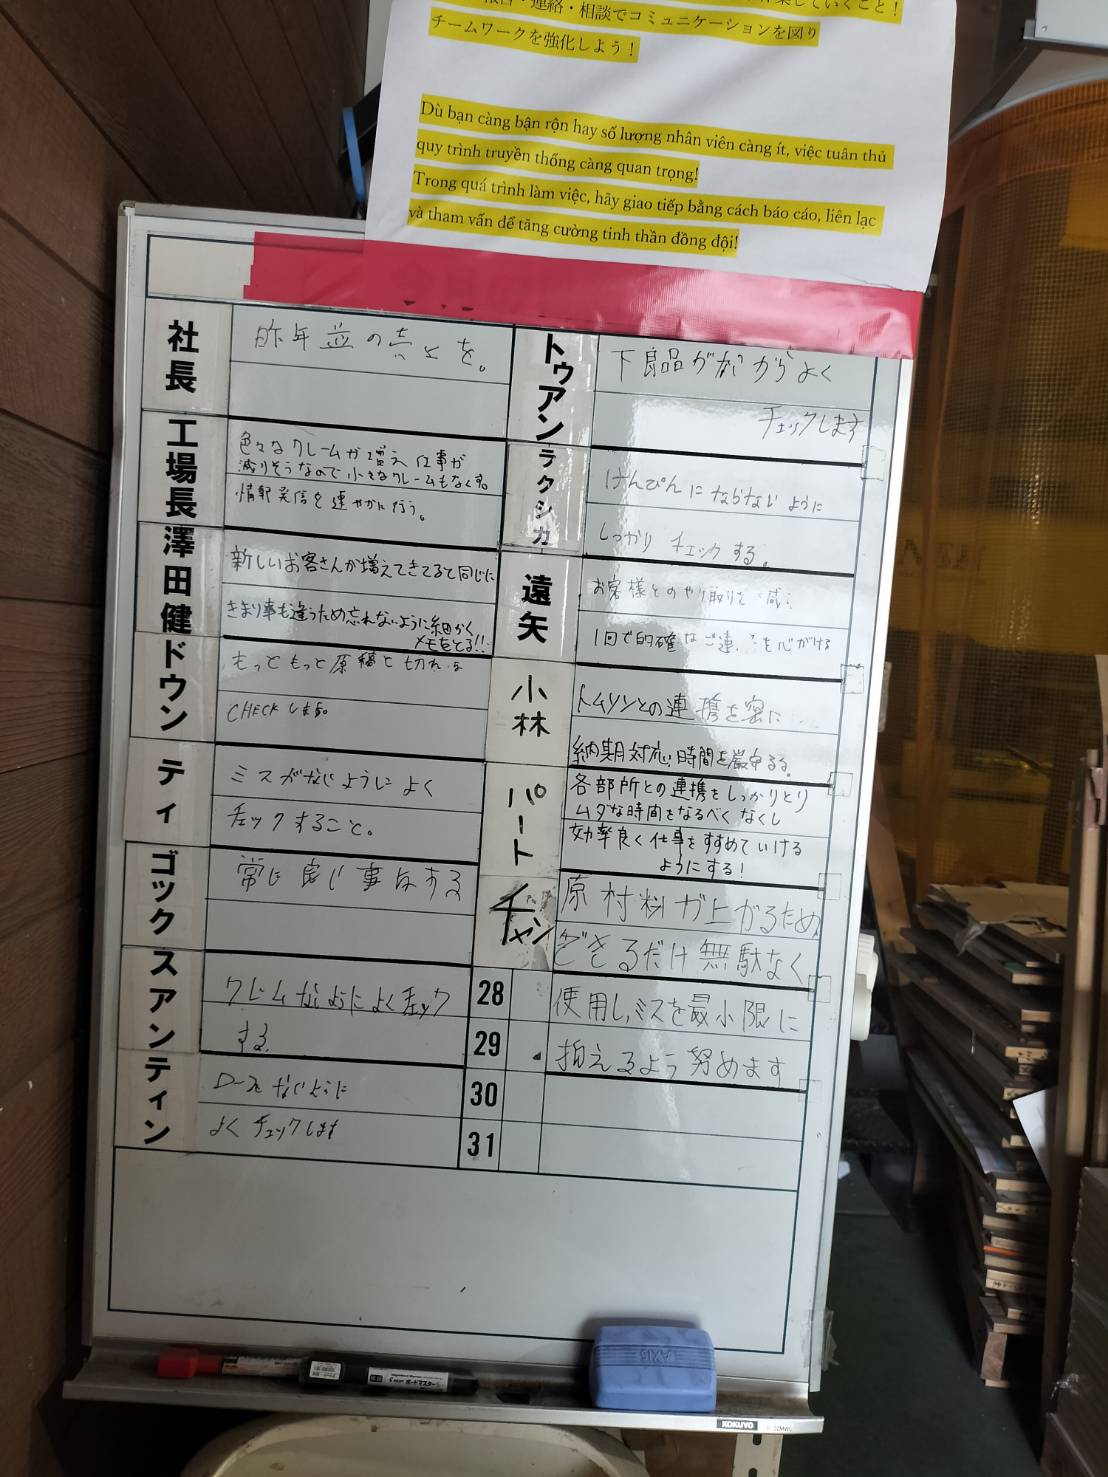 ・連絡・相談でコミュニケーションを図り
チームワークを強化しよう！
Dù bạn càng bận rộn hay số lượng nhân viên càng ít, việc tuân thủ
quy trình truyền thống càng quan trọng!
Trong quá trình làm việc, hãy giao tiếp bằng cách báo cáo, liên lạc
và tham vấn để tăng cường tinh thần đồng đội!
社長
昨年並の売上を。
工場長
色々なクレームが増え、仕事が
減りそうなので小さなクレームもなくす。
情報発信を速やかに行う。
澤田健
新しいお客さんが増えてきてると同じに
きまり事も違うため忘れないように細かく
メモをとる!!
ドウン
もっともっと原稿と切れ
CHECK します。
ティ
ミスがないようによく
チェックすること。
ゴック
常に良い事をする
スアン
クレームないようによくチェック
する
ティン
ないように
よくチェックします
トゥアン
不良品がないからよく
チェックします
ラクシカ
けんぴんにならないように
しっかりチェックする。
遠矢
お客様とのやり取りを
1回で的確な を心がける
小林
トムソンとの連携を密に
納期対応、時間を厳守する。
パート
各部所との連携をしっかりとり
ムダな時間をなるべくなくし
効率良く仕事をすすめていける
ようにする！
チャン
原材料が上がるため
できるだけ無駄なく
28
使用し、ミスを最小限に
29
抑えるよう努めます
30
31
AXIS
KOKUYO